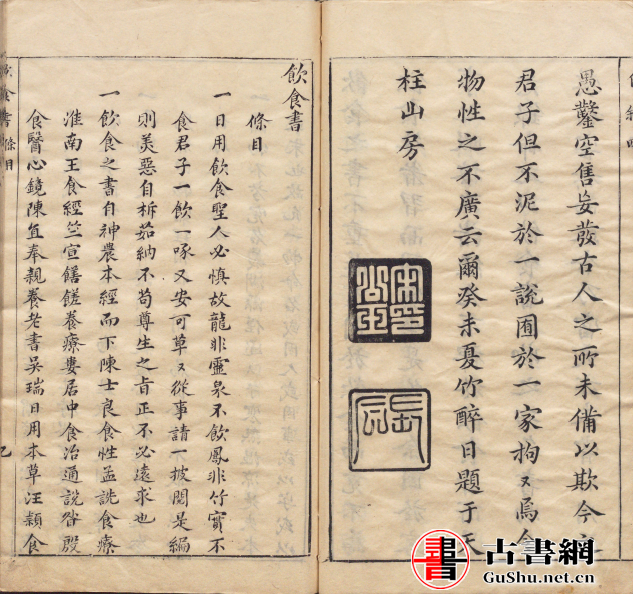 愚鑿空售妄發古人之所未備以欺今之
君子但不泥於一說囿於一家拘又焉令
物性之不廣云爾癸未夏竹醉日題于天
柱山房
飲食書
條目
一日用飲食聖人必慎故龍非靈泉不飲鳳非竹實不
食君子一飲一啄又安可草又從事請一披閱是編
則美惡自析茹納不苟尊生之旨正不必遠求也
一飲食之書自神農本經而下陳士良食性孟詵食療
淮南王食經竺宣饍饈養療婁居中食治通說昝殷
食醫心鏡陳直奉親養老書吳瑞日用本草汪穎食
飲食書 條目
乙
古書網
GuShu.net.cn